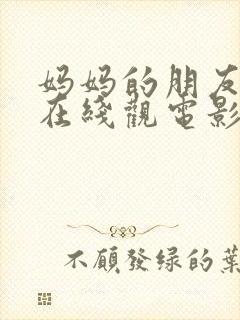 妈妈的朋友
在綫觀電影
不願發绿的葉